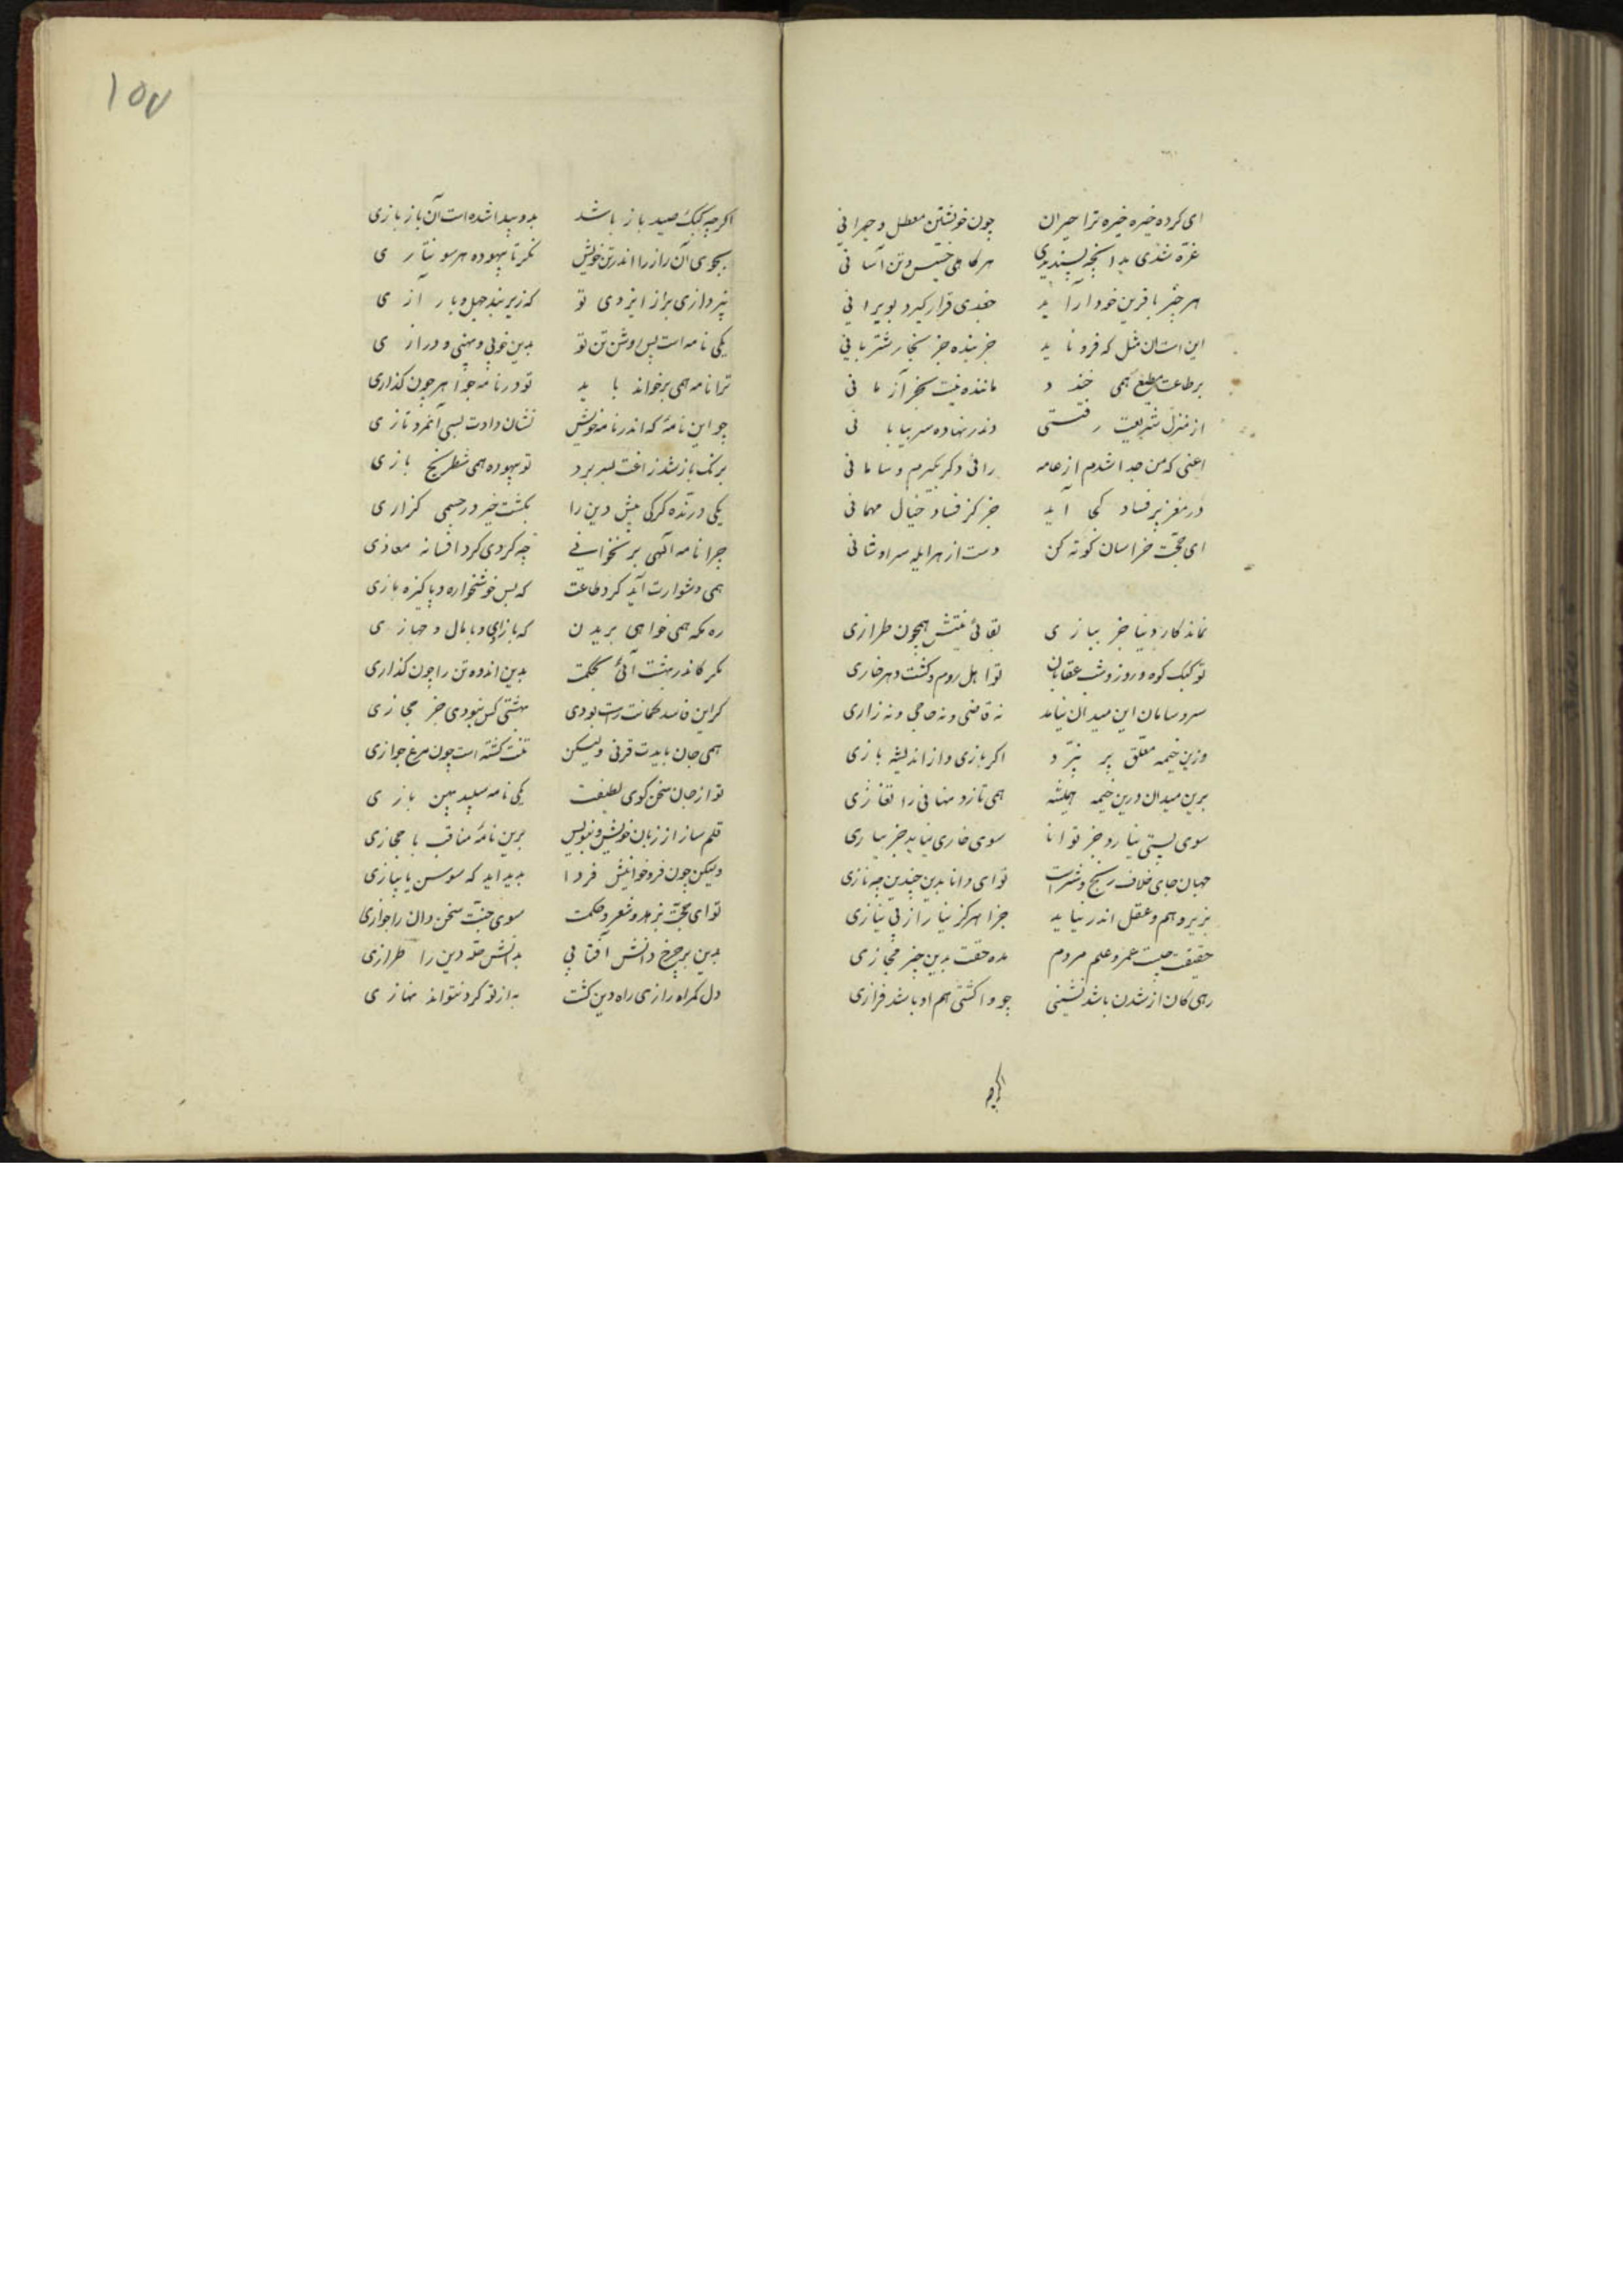 ای کرده خیره خیره ترا حیران چون خویشتن معطل و حیرانی
غره شدی بدانچه پسندیدی هر کاهی خسیس و تن آسانی
هر چیز با قرین خود آراید جغدی قرار کیرد بویرانی
این است آن مثل که فرو ناید خربنده جز بخار شتربانی
بر طاعت مطیع همی خندد ماننده نیست بجز
از منزل شریعت رفتستی وندر نهاده سر بیابانی
اعنی که من جدا شدم از عامه رائی دکر بکیرم و سامانی
در مغز پر فساد کجا آید جز کز فساد خیال مهمانی
ای حجت خراسان کوته کن دست از هر ابله سراوشانی
نماند کار دنیا جز ببازی بقائی نیستش همچون طرازی
تو کبک کوه و روز و شب عقابان تو اهل روم و کشت دهر غازی
سر و سامان این میدان نیامد نه قاضی و نه حاجی و نه زاری
وزین خیمه معلق بر نپرد اکر بازی و از اندیشه بازی
برین میدان درین خیمه همیشه همی تازد منافی را تغازی
سوی پستی نیارد جز توانا سوی خاری نیاید جز بیاری
جهان جای خلاف رنج و شر است تو ای دانا بدین چندین چه نازی
بزیر وهم و عقل اندر نیاید جزا هرکز نیاز از بی نیازی
حقیقت چیست عمر و علم مردم مده حقت بدین چیز مجازی
رهی کان از شدن باشد نشیبی چو واکشتی هم او باشد فرازی
اکرچه
۱۵۷
اکرچه کبک صید باز باشد بدو پیدا شده است آن باز بازی
بجوی آن راز را اندر تن خویش نکر تا بیهوده هر سو نتازی
نپردازی براز ایزدی تو که زیر بند جهل و بار آزی
یکی نامه است بس روشن تن تو بدین خوبی و پهنی و درازی
ترا نامه همی برخواند باید تو در نامه چو آهو چون کذاری
چو این نامهٔ که اندر نامه خویش نشان دادت بسی آنمرد تازی
برنک باز شد زاغت بسر برد تو بیهوده همی شطرنج بازی
یکی درنده کرکی میش دین را بکشت خیر در جسمی کزاری
چرا نامه آلهی بر نخوانی چه کردی کرد افسانه معاذی
همی دشوارت آید کرد طاعت که بس خوشخواره و پاکیزه بازی
ره مکه همی خواهی بریدن که با زای و با مال و جهازی
مکر کاندر بهشت آئی بحکمت بدین اندوه تن را چون کذاری
کر این فاسد کمانت راست بودی بهشتی کس نبودی جز مجازی
همی جان بایدت قربی ولیکن تنت کشته است چون مرغ جوازی
تو از جان سخن کوی لطیفت یکی نامه سپید پهن بازی
قلم ساز از زبان خویش و بنویس برین نامهٔ مناقب یا مجازی
ولیکن چون فرو خوانیش فردا پدید آید که سوسن یا پیازی
تو ای حجت بزهد و شعر و حکمت سوی جنت سخن دان را جوازی
بدین بر چرخ دانش آفتابی بدانش حله دین را طرازی
دل کمراه را زی راه دین کشت به از تو کرد نتواند نهازی